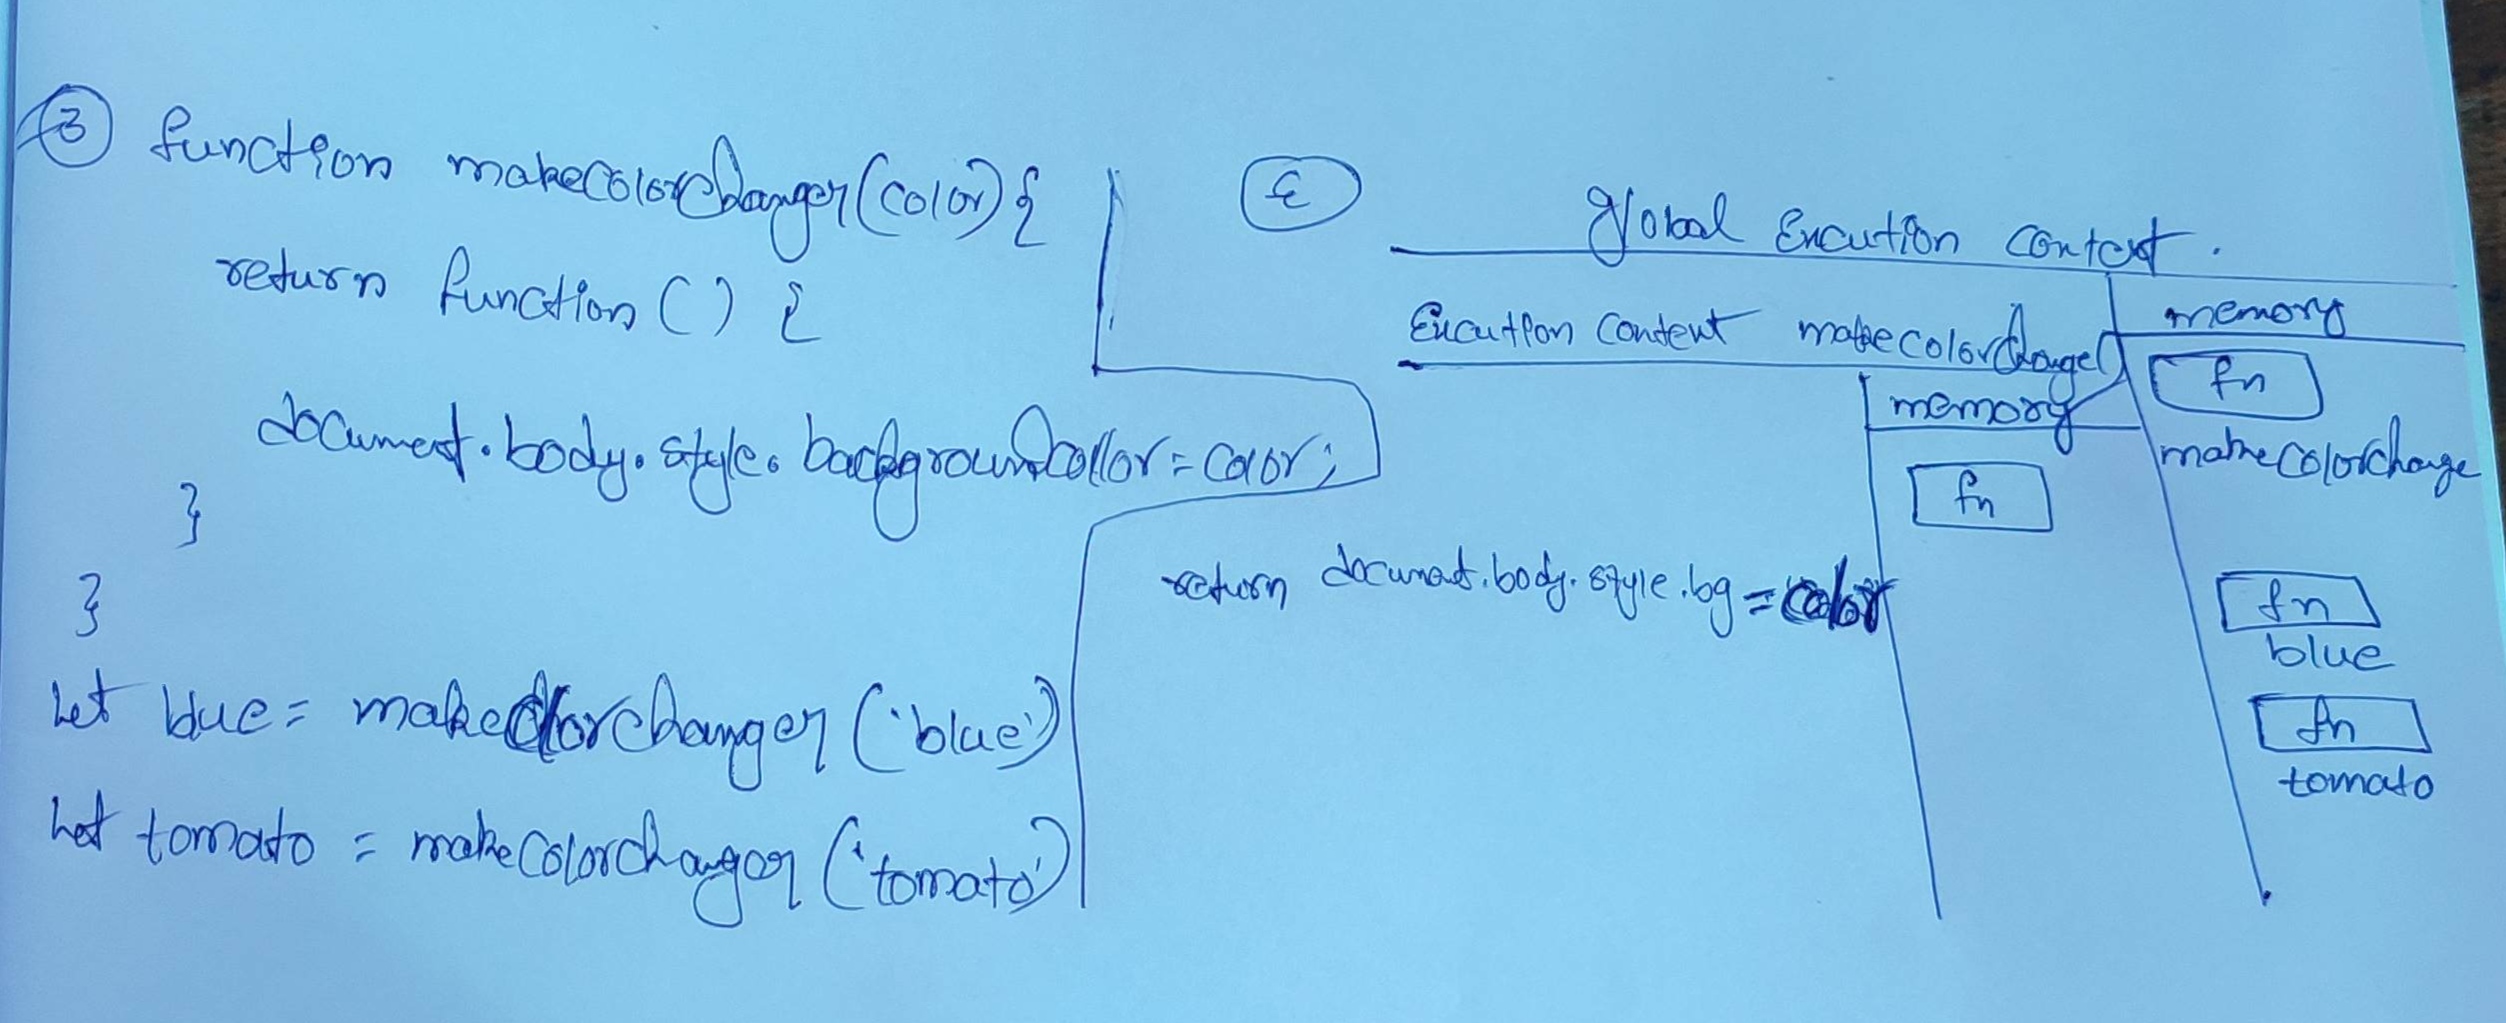 3 function makecolorchanger(color) {
return function () {
document.body.style.backgroundcollor = color;
}
}
let blue = makecolorchanger ('blue')
let tomato = makecolorchanger ('tomato')
global Excution context.
Excution Content makecolorchange()
memory
fn
return document.body.style.bg = color
memory
fn
makecolorchange
fn
blue
fn
tomato